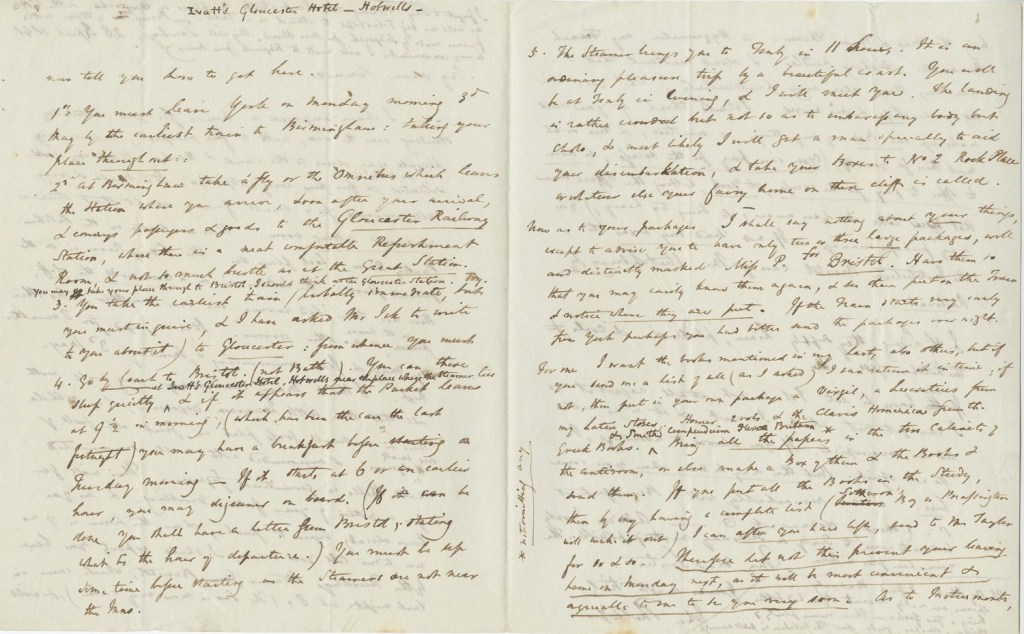 Ivatt's Gloucester Hotel – Hotwells –
now tell you how to get here.
1st You must leave York on Monday morning 3d
May by the earliest train to Birmingham: taking your
place throughout::
2d At Birmingham take a fly or the Omnibus which leaves
the Station where you arrive, soon after your arrival,
& conveys passengers & goods to the Gloucester Railway
Station, where there is a neat comfortable Refreshment
Room, & not so much bustle as at the Great Station.
you may take your place through to Bristol, I should think at the Gloucester Station. Try.
3. You take the earliest train (probably immediate, but
you must inquire, & I have asked Mr. to write
to you about it) to Gloucester: from whence you must
4. go by coach to Bristol. (not Bath). You can there
at Ivatt's Gloucester Hotel, Hotwells, near the place where the Steamer lies
sleep quietly & if it appears that the Packet leaves
at 9½ in morning, (which has been the case the last
fortnight) you may have a breakfast before starting on
Tuesday morning – If it starts at 6 or an earlier
hour, you may dejeuner on board. (If it can be
done you shall have a letter from Bristol, stating
what is the hour of departure.) You must be up
some time before starting as the Steamers are not near
the Inns.
5. The Steamer brings you to Tenby in 11 hours. It is an
ordinary pleasure trip by a beautiful coast. You will
be at Tenby in Evening, & I will meet you. The landing
is rather crowded but not so as to embarrass any body but
& most likely I will get a man specially to aid
your disembarkation, & take your Boxes to No 2 Rock Place
or whatever else your fairy home on these cliffs is called.
Now as to your packages I shall say nothing about your things,
except to advise you to have only two or three large packages, well
and distinctly marked Miss P. for Bristol. Have them so
that you may easily know them again, & see them put on the Train
& notice where they are put. If the Train starts very early
from York perhaps you had better send the packages over night.
For me I want the books mentioned in my last, also others, but if
you send me a list of all (as I asked) I will return it in time; if
not, then put in your own package a Virgil, a Lucretius from
my Latin Homer 2 vols & the Clavis Homerica from the
& Smith's Compendium Britan *
Greek Books. Bring all the papers in the two Cabinets of
the anteroom, or else make a Box of them & the Books &
send them. If you put all the Books in the Study,
then by my having a complete list ( Boy or
will make it out) I can after you have left, send to Mr Taylor
for so & so. Therefore let not this prevent your leaving
home on Monday next, as it will be most convenient &
agreeable to me to see you very soon. As to Instruments,
* omitting any